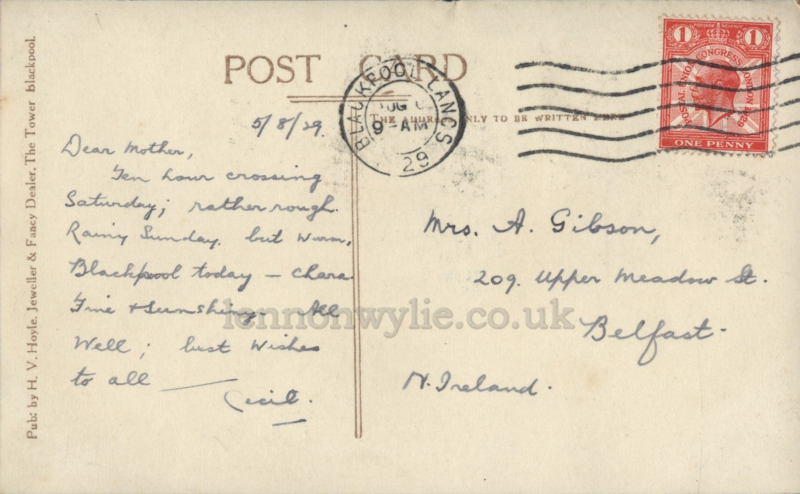 POST CARD
THE ADDRESS ONLY TO BE WRITTEN HERE
BLACKPOOL. LANCS
AUG 6
9- AM
29
1 POSTAGE 1
POSTAL UNION CONGRESS LONDON 1929
ONE PENNY
5/8/29.
Dear Mother,
Ten hour crossing
Saturday; rather rough.
Rainy Sunday. but warm,
Blackpool today — Chara
Fine & Sunshiny. All
Well; best wishes
to all —
Cecil.
Mrs. A. Gibson,
209. Upper Meadow St.
Belfast.
N. Ireland.
Pub: by H. V. Hoyle, Jeweller & Fancy Dealer, The Tower Blackpool.
lennonwylie.co.uk